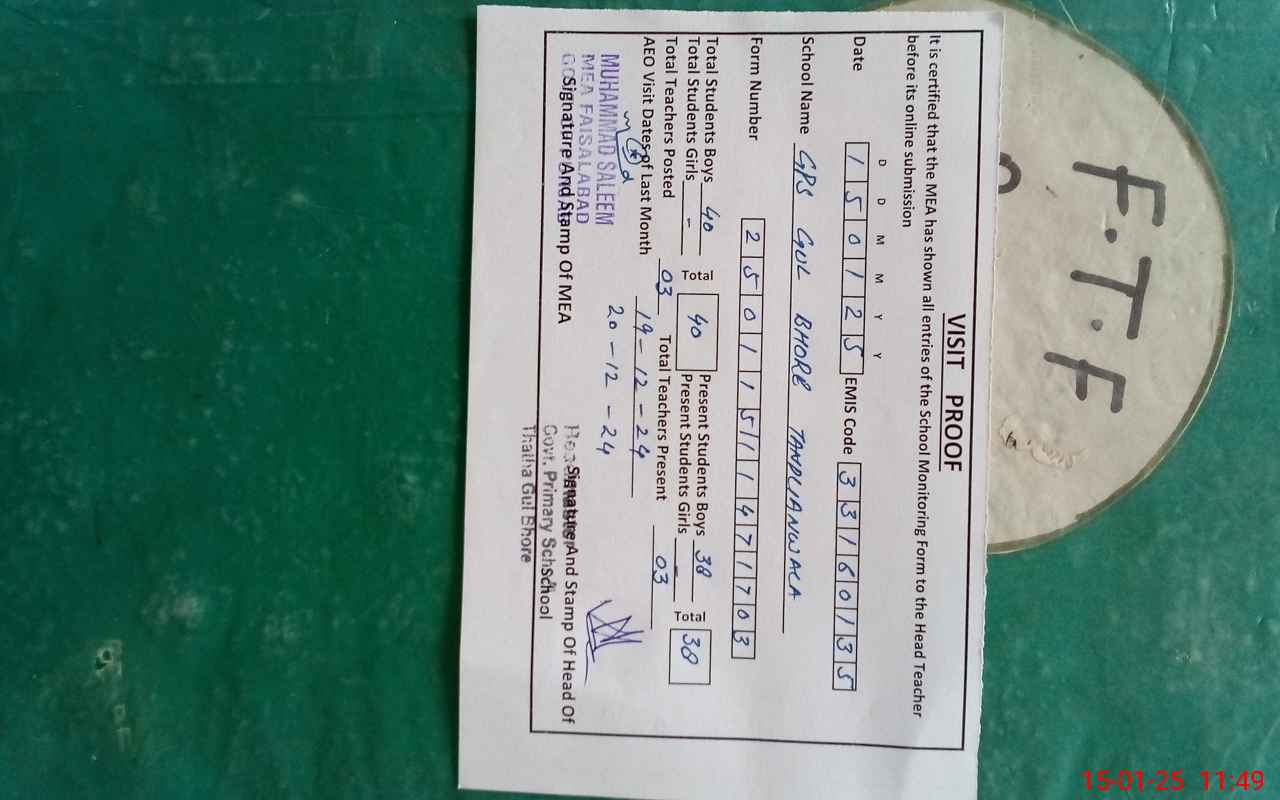 F.T.F
VISIT PROOF
It is certified that the MEA has shown all entries of the School Monitoring Form to the Head Teacher
before its online submission
D D M M Y Y
Date 1 5 0 1 2 5 EMIS Code 3 3 1 6 0 1 3 5
School Name GPS GUL BHORE TANDLIANWALA
Form Number 2 5 0 1 1 5 1 1 4 7 1 7 0 3
Total Students Boys 40 Total 40 Present Students Boys 38 Total 38
Total Students Girls - Present Students Girls -
Total Teachers Posted 03 Total Teachers Present 03
AEO Visit Dates of Last Month 19-12-24
20-12-24
MUHAMMAD SALEEM
MEA FAISALABAD
Signature And Stamp Of MEA
Signature And Stamp Of Head Of
School
Govt. Primary School
Thatha Gul Bhore
15-01-25 11:49